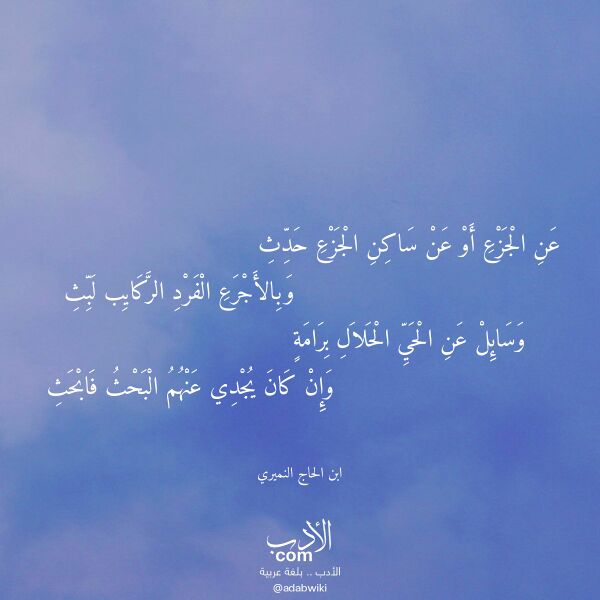 عَنِ الْجَزْعِ أَوْ عَنْ سَاكِنِ الْجَزْعِ حَدِّثِ
وَبِالأَجْرَعِ الْفَرْدِ الرَّكَايِب لَبِّثِ
وَسَايِلْ عَنِ الْحَيِّ الْحَلاَلِ بِرَامَةٍ
وَإِنْ كَانَ يُجْدِي عَنْهُمُ الْبَحْثُ فَابْحَثِ
ابن الحاج النميري
الأدب
com
الأدب .. بلغة عربية
@adabwiki